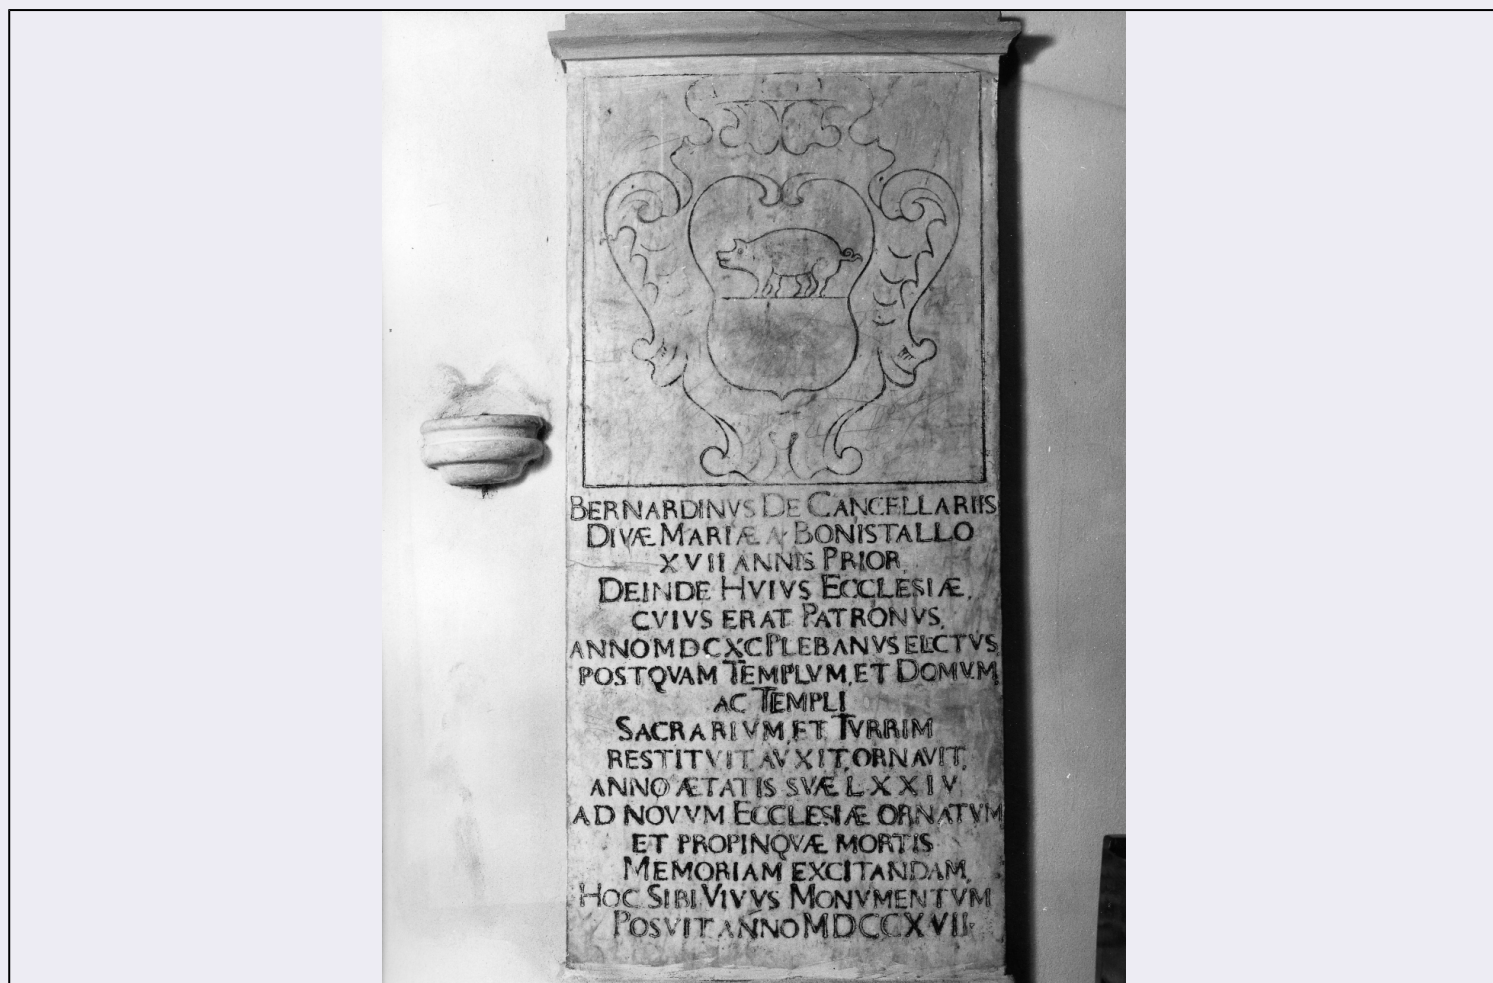 BERNARDINVS DE CANCELLARIIS
DIVÆ MARIÆ A BONISTALLO
XVII ANNIS PRIOR,
DEINDE HVIVS ECCLESIÆ,
CVIVS ERAT PATRONVS,
ANNO MDCXC PLEBANVS ELECTVS,
POSTQVAM TEMPLVM, ET DOMVM,
AC TEMPLI
SACRARIVM, ET TVRRIM
RESTITVIT, AVXIT, ORNAVIT,
ANNO ÆTATIS SVÆ LXXIV
AD NOVVM ECCLESIÆ ORNATVM
ET PROPINQVÆ MORTIS
MEMORIAM EXCITANDAM,
HOC SIBI VIVVS MONVMENTVM
POSVIT ANNO MDCCXVII